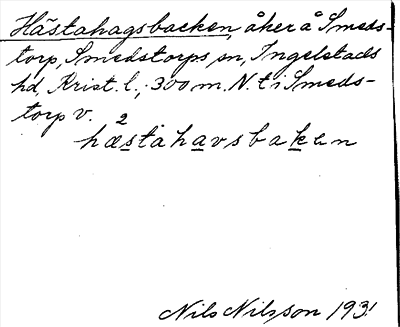 Hästahagsbacken, åker å Smeds-
torp, Smedstorps sn, Ingelstads
hd, Krist. l.; 300 m. N. t i Smeds-
torp v.
2
hæstahavsbaken
Nils Nilsson 1931